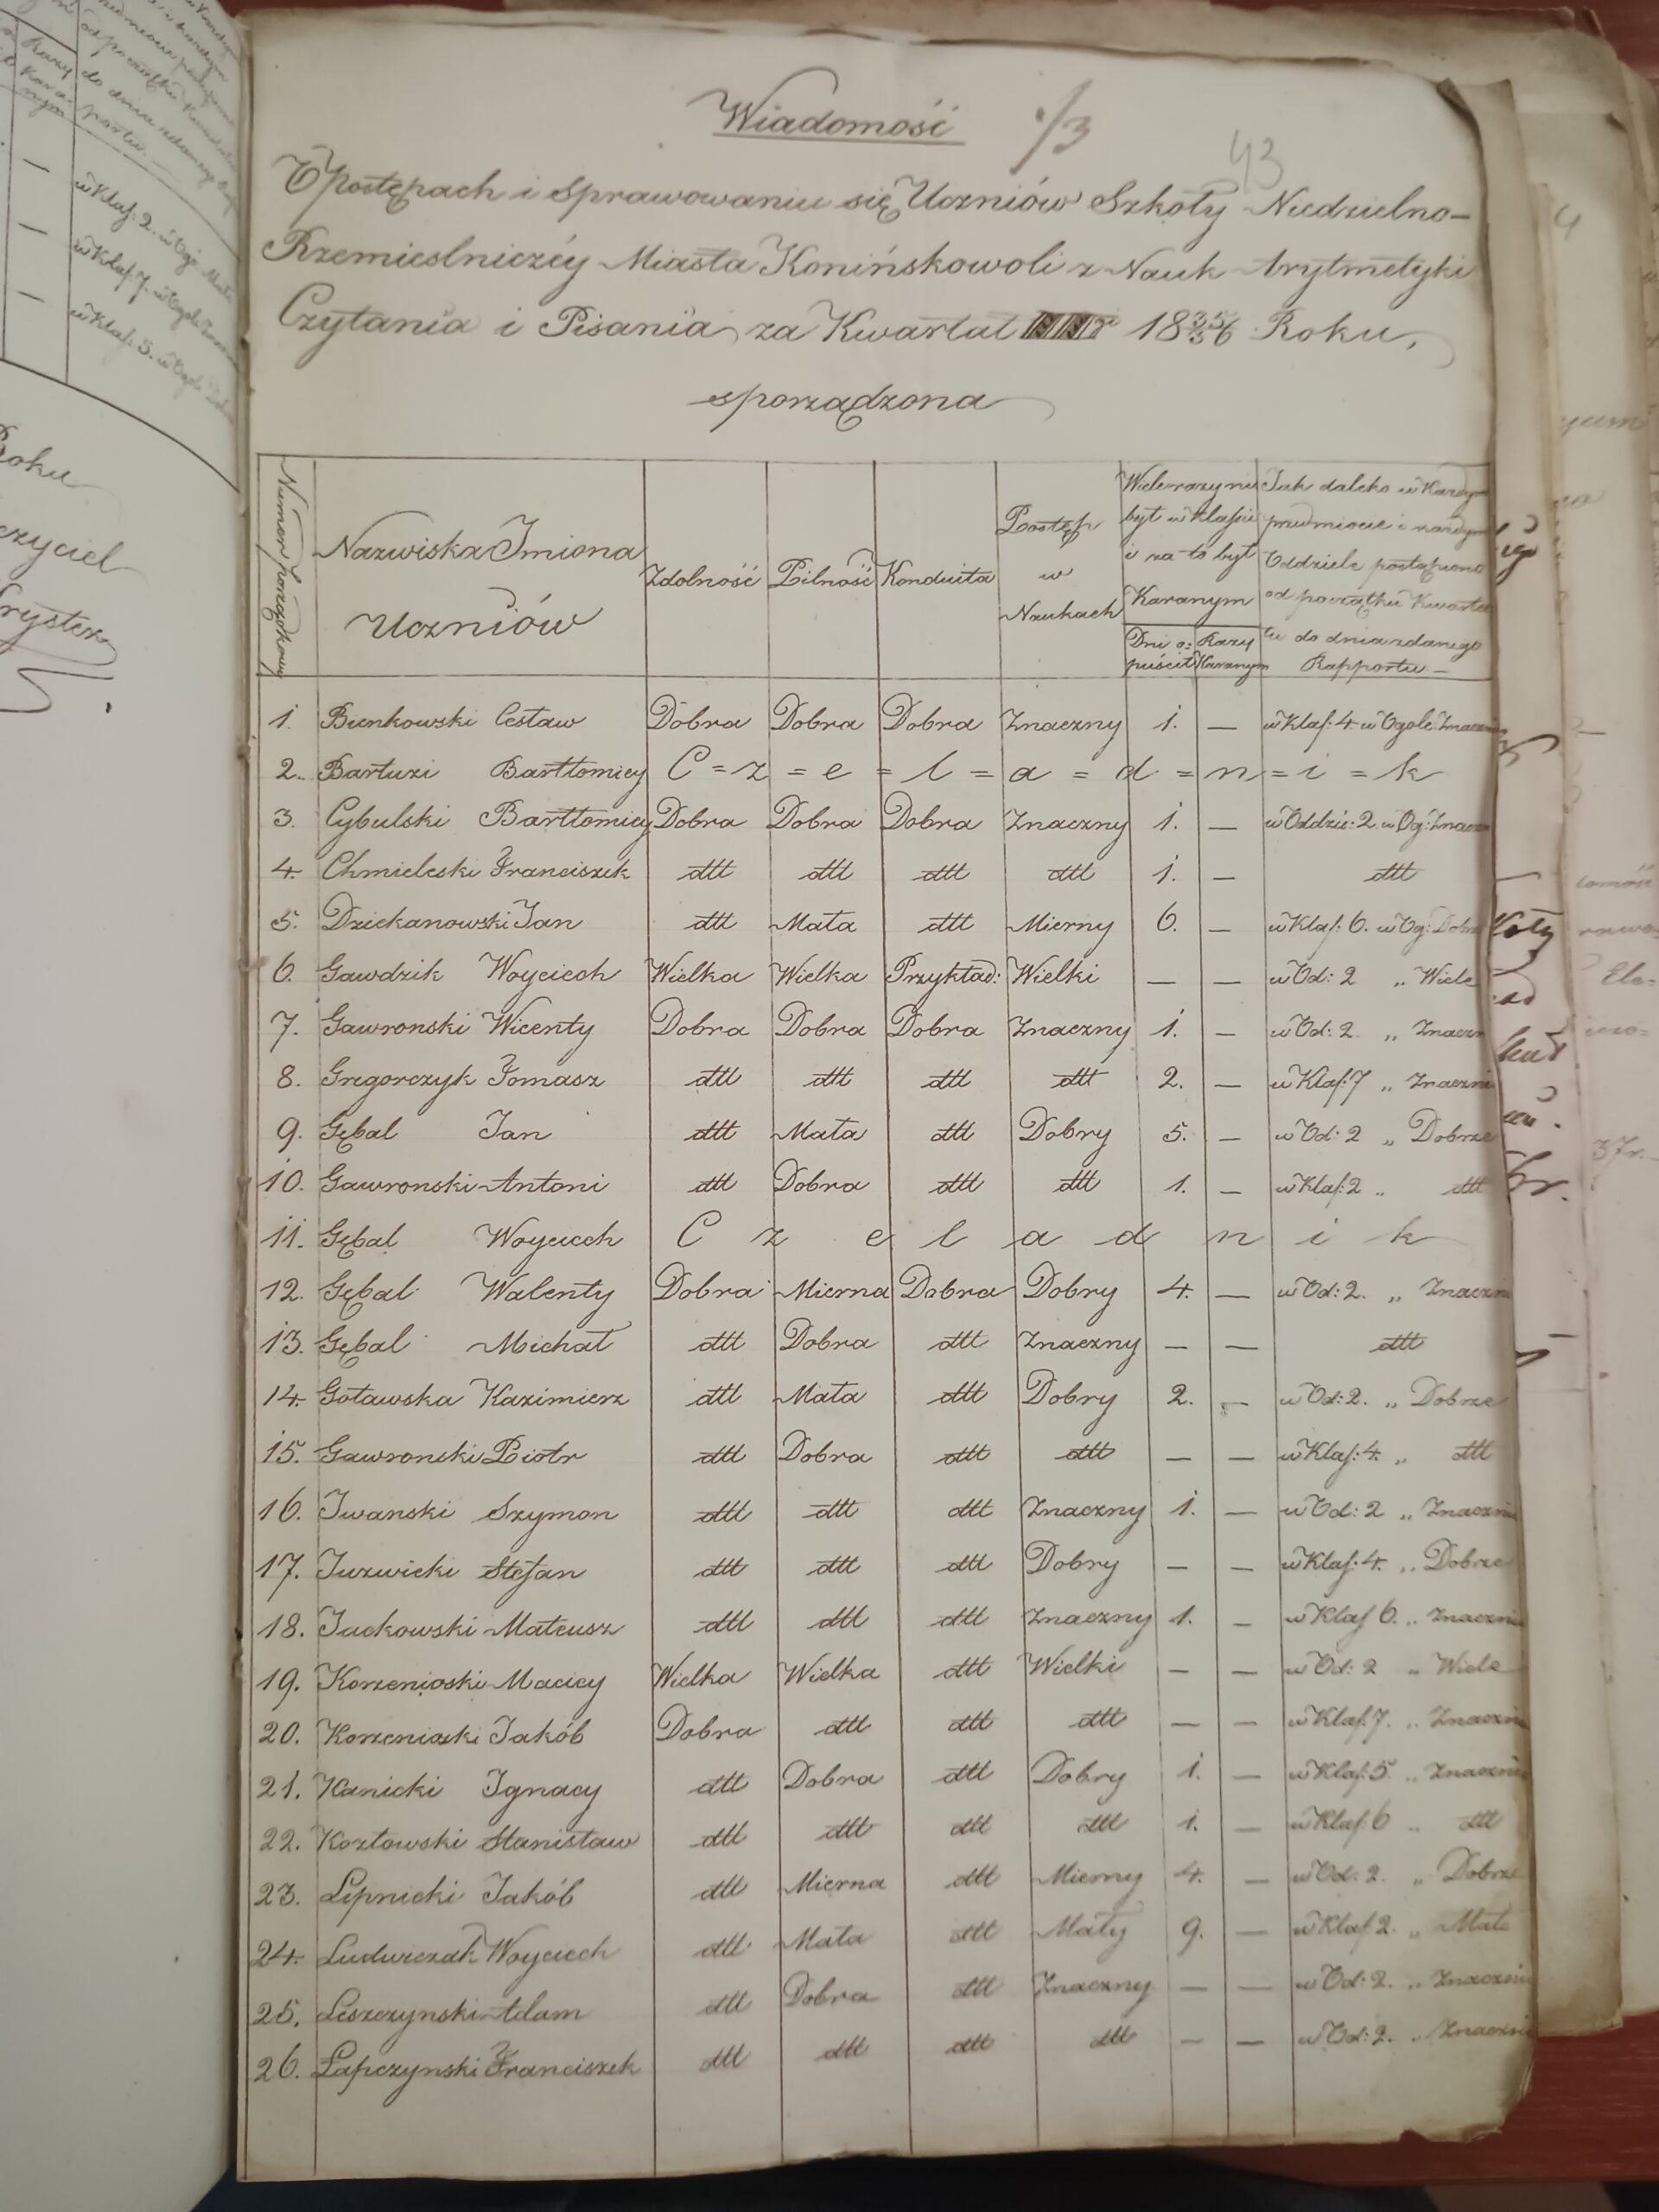 Wiadomość ./3
43
O Postępach i Sprawowaniu się Uczniów Szkoły Niedzielno-
Rzemieslniczéy Miasta Konińskowoli z Nauk Arytmetyki
Czytania i Pisania za Kwartał 18 35/36 Roku,
sporządzona
Numer porządkowy
Nazwiska Imiona Uczniów
Zdolność
Pilność
Konduita
Postęp w Naukach
Wiele razy nie
był w klassie
i za to był
Karanym
Dni o= Razy
puścił Karanym
Jak daleko w Każdym
przedmiocie i każdym
Oddziele postąpiono
od początku Kwarta
łu do dnia zdanego
Rapportu -
1. Bienkowski Cesław Dobra Dobra Dobra Znaczny 1. — w Klas: 4. w Ogole Znacznie
2. Bartuzi Bartłomiey C = z = e = l = a = d = n = i = k
3. Cybulski Bartłomiey Dobra Dobra Dobra Znaczny 1. — w Oddzie: 2. w Og: Znaczn
4. Chmieleski Franciszek dtt dtt dtt dtt 1. — dtt
5. Dziekanowski Jan dtt Mała dtt Mierny 6. — w Klas: 6. w Og: Dobrze
6. Gawdzik Woyciech Wielka Wielka Przykład: Wielki — — w Od: 2 „ Wiele
7. Gawronski Wicenty Dobra Dobra Dobra Znaczny 1. — w Od: 2. „ Znaczn
8. Gregorczyk Tomasz dtt dtt dtt dtt 2. — w Klas: 7 „ Znaczni
9. Gębal Jan dtt Mała dtt Dobry 5. — w Od: 2 „ Dobrze
10. Gawronski Antoni dtt Dobra dtt dtt 1. — w Klas: 2 „ dtt
11. Gębal Woyciech C z e l a d n i k
12. Gębal Walenty Dobra Mierna Dobra Dobry 4. — w Od: 2. „ Znaczni
13. Gębal Michał dtt Dobra dtt Znaczny — — dtt
14. Goławska Kazimierz dtt Mała dtt Dobry 2. — w Od: 2. „ Dobrze
15. Gawronski Piotr dtt Dobra dtt dtt — — w Klas: 4. „ dtt
16. Iwanski Szymon dtt dtt dtt Znaczny 1. — w Od: 2 „ Znacznie
17. Juzwicki Stefan dtt dtt dtt Dobry — — w Klas: 4. „ Dobrze
18. Jackowski Mateusz dtt dtt dtt Znaczny 1. — w Klas 6. „ Znacznie
19. Korzenioski Maciey Wielka Wielka dtt Wielki — — w Od: 2 „ Wiele
20. Korzenioski Jakób Dobra dtt dtt dtt — — w Klas: 7. „ Znacznie
21. Kanicki Ignacy dtt Dobra dtt Dobry 1. — w Klas: 5. „ Znacznie
22. Kozłowski Stanisław dtt dtt dtt dtt 1. — w Klas: 6 „ dtt
23. Lipnicki Jakób dtt Mierna dtt Mierny 4. — w Od: 2. „ Dobrze
24. Ludwiczak Woyciech dtt Mała dtt Mały 9. — w Klas: 2. „ Mało
25. Leszczynski Adam dtt Dobra dtt Znaczny — — w Od: 2. „ Znacznie
26. Łapczynski Franciszek dtt dtt dtt dtt — — w Od: 2. „ Znacznie